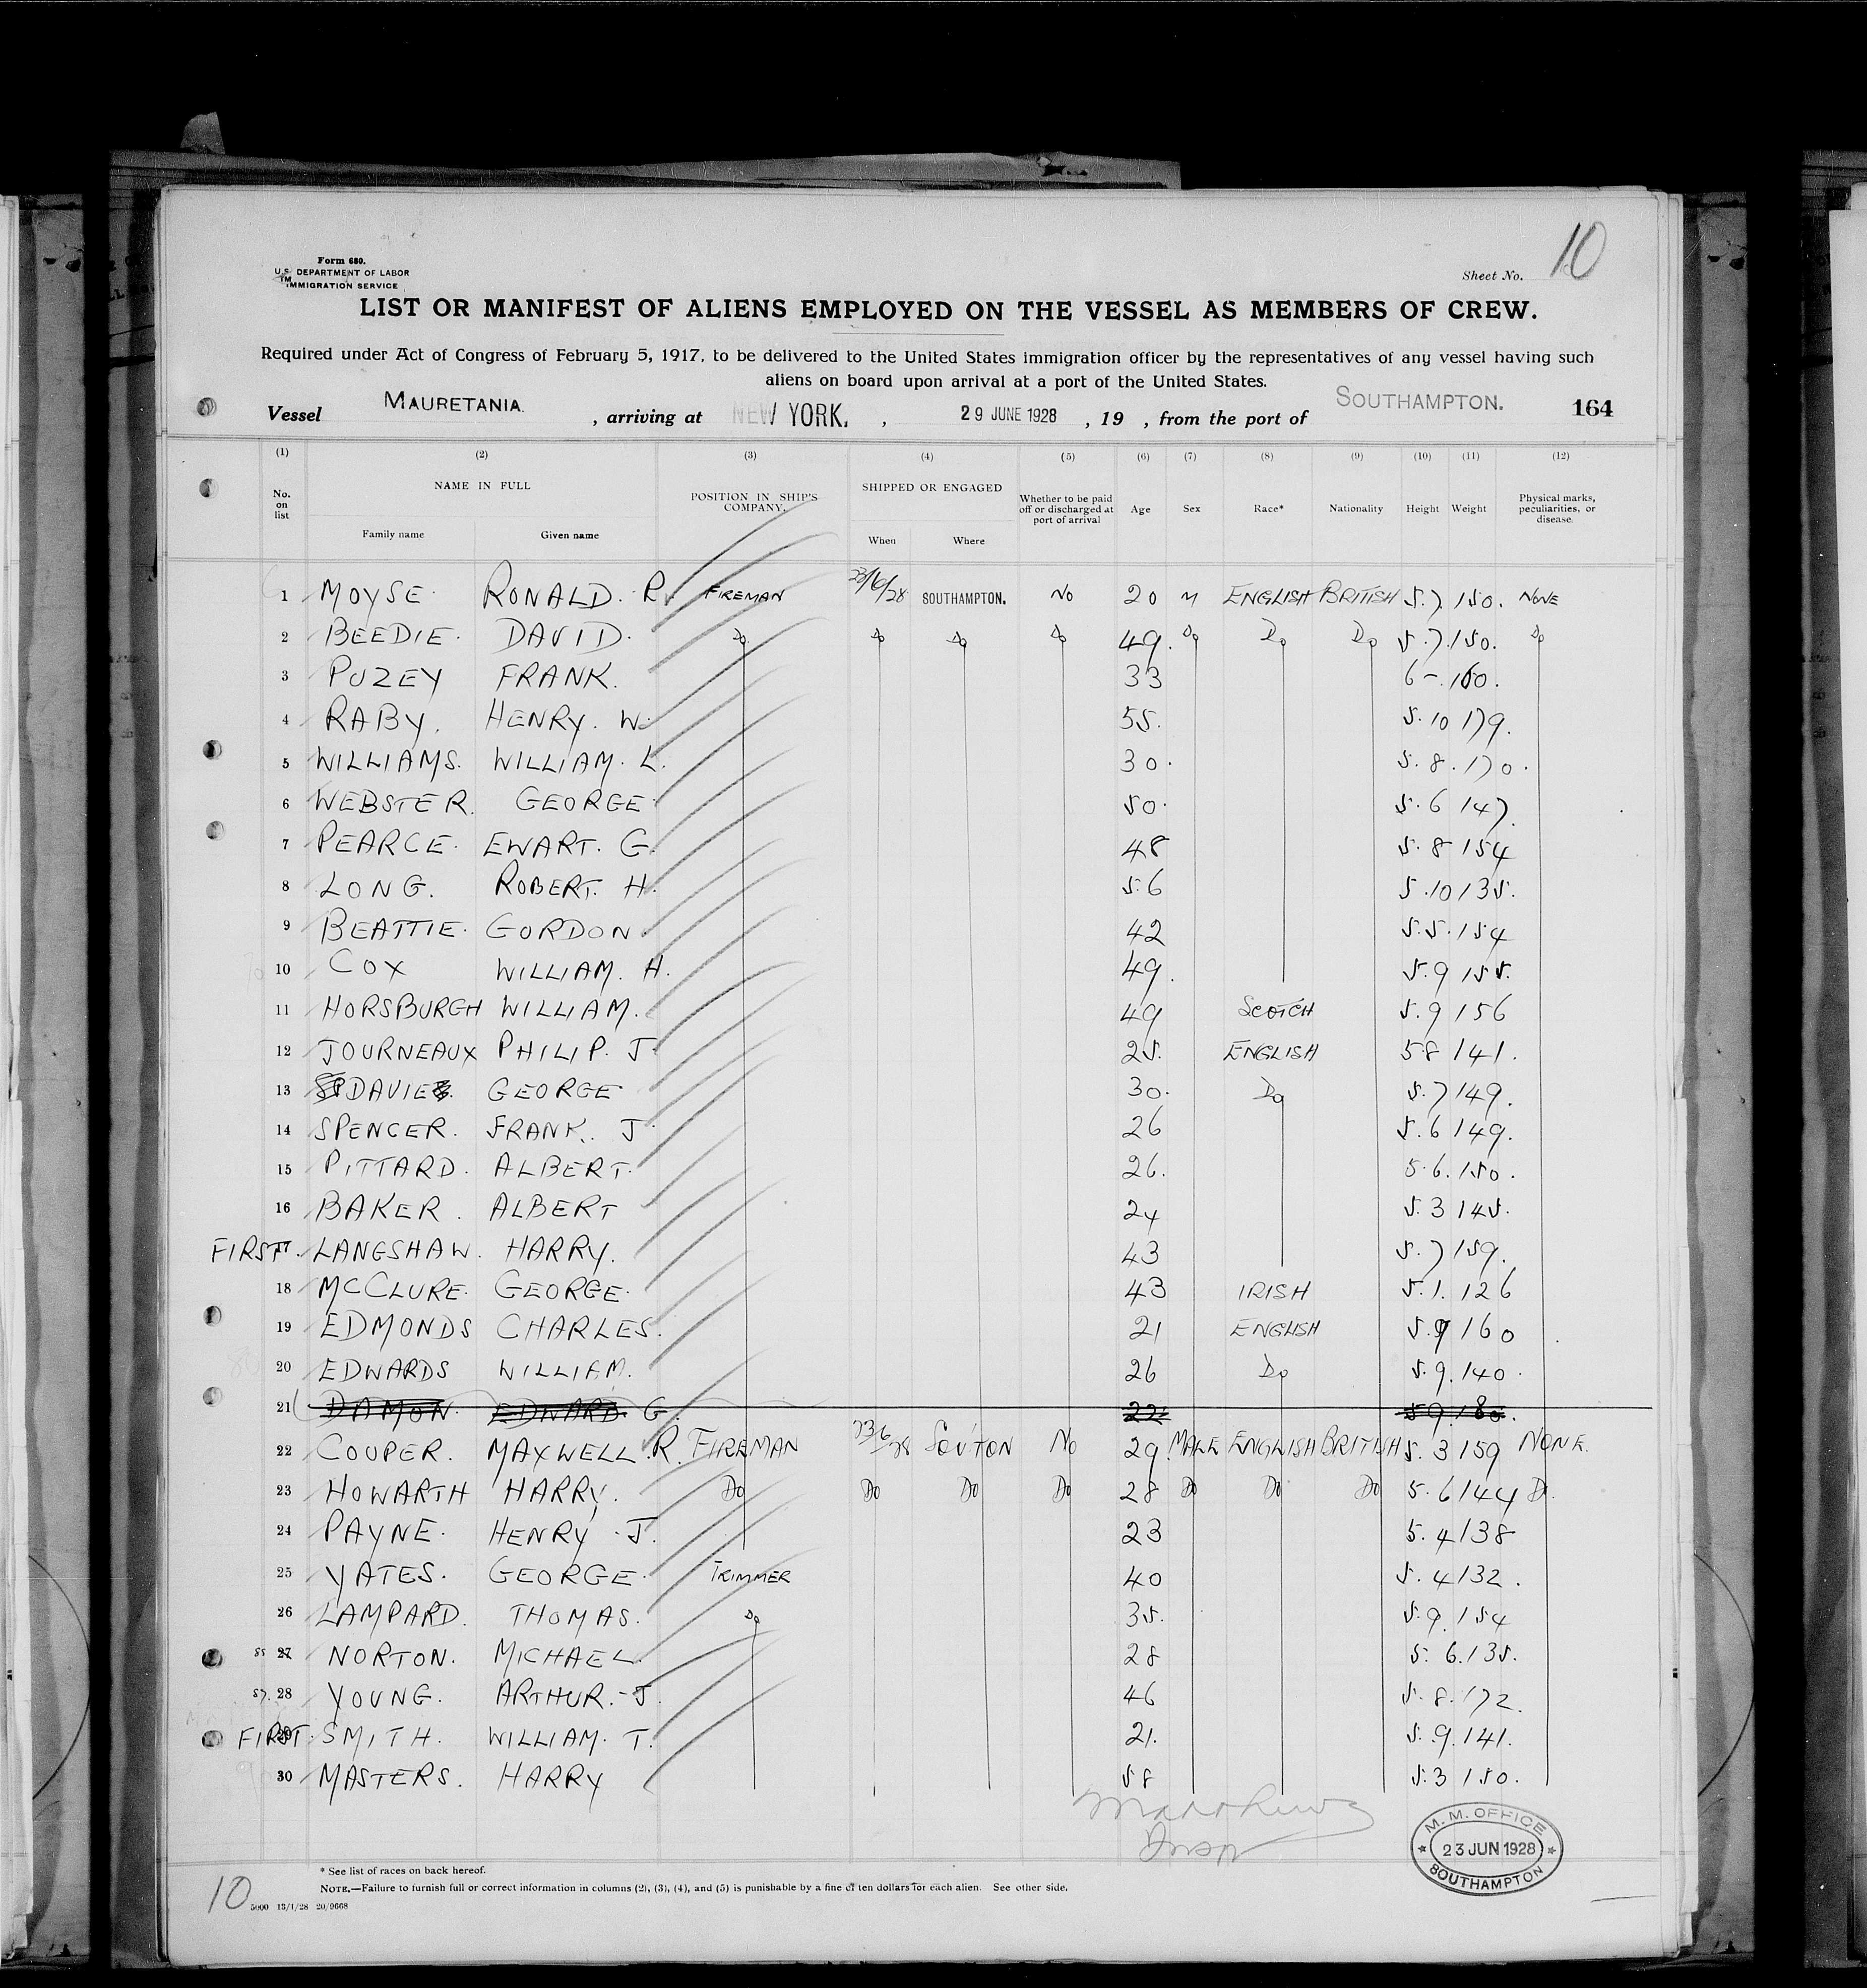 10
Form 680.
U.S. DEPARTMENT OF LABOR
IMMIGRATION SERVICE
Sheet No.
LIST OR MANIFEST OF ALIENS EMPLOYED ON THE VESSEL AS MEMBERS OF CREW.
Required under Act of Congress of February 5, 1917, to be delivered to the United States immigration officer by the representatives of any vessel having such
aliens on board upon arrival at a port of the United States.
Vessel MAURETANIA. , arriving at NEW YORK. , 29 JUNE 1928 , 19 , from the port of SOUTHAMPTON. 164
(1) (2) (3) (4) (5) (6) (7) (8) (9) (10) (11) (12)
No. on list NAME IN FULL Family name Given name POSITION IN SHIP'S COMPANY. SHIPPED OR ENGAGED When Where Whether to be paid off or discharged at port of arrival Age Sex Race* Nationality Height Weight Physical marks, peculiarities, or disease
1 MOYSE. RONALD. R. FIREMAN 23/6/28 SOUTHAMPTON. NO 20 M ENGLISH BRITISH 5.7 150. NONE
2 BEEDIE. DAVID. Do Do Do Do 49. Do Do Do 5.7.150. Do
3 PUZEY FRANK. 33 6-.160.
4 RABY. HENRY. W. 55. 5.10 179.
5 WILLIAMS. WILLIAM. L. 30. 5.8.170.
6 WEBSTER. GEORGE. 50. 5.6 147.
7 PEARCE. EWART. G. 48 5.8 154
8 LONG. ROBERT. H. 56 5.10 135.
9 BEATTIE. GORDON. 42 5.5.154
10 COX WILLIAM. H. 49. 5.9 155.
11 HORSBURGH WILLIAM. 49 SCOTCH 5.9 156
12 JOURNEAUX PHILIP. J. 25. ENGLISH 5.8 141.
13 DAVIES. GEORGE 30. Do 5.7 149.
14 SPENCER. FRANK. J. 26 5.6 149.
15 PITTARD. ALBERT. 26. 5.6.150.
16 BAKER. ALBERT 24 5.3 145.
FIRST. LANGSHAW. HARRY. 43 5.7 159.
18 MCCLURE. GEORGE. 43 IRISH 5.1. 126
19 EDMONDS CHARLES. 21 ENGLISH 5.9 160
20 EDWARDS WILLIAM. 26 Do 5.9.140.
21 DAMON. EDWARD. G. 22 5 9.180.
22 COUPER. MAXWELL. R. FIREMAN 23/6/28 SOU'TON NO 29. MALE ENGLISH BRITISH 5.3 159 NONE.
23 HOWARTH HARRY. Do Do Do Do 28 Do Do Do 5.6 144 Do.
24 PAYNE. HENRY. J. 23 5.4 138
25 YATES. GEORGE. TRIMMER 40 5.4 132.
26 LAMPARD. THOMAS. Do 35. 5.9.154
27 NORTON. MICHAEL. 28 5.6.135.
28 YOUNG. ARTHUR.-J. 46 5.8.172.
FIRST. SMITH. WILLIAM. T. 21. 5.9.141.
30 MASTERS. HARRY 58 5.3 150.
M.M. OFFICE
23 JUN 1928
SOUTHAMPTON
* See list of races on back hereof.
NOTE.—Failure to furnish full or correct information in columns (2), (3), (4), and (5) is punishable by a fine of ten dollars for each alien. See other side.
10
5000 13/1/28 20/9668